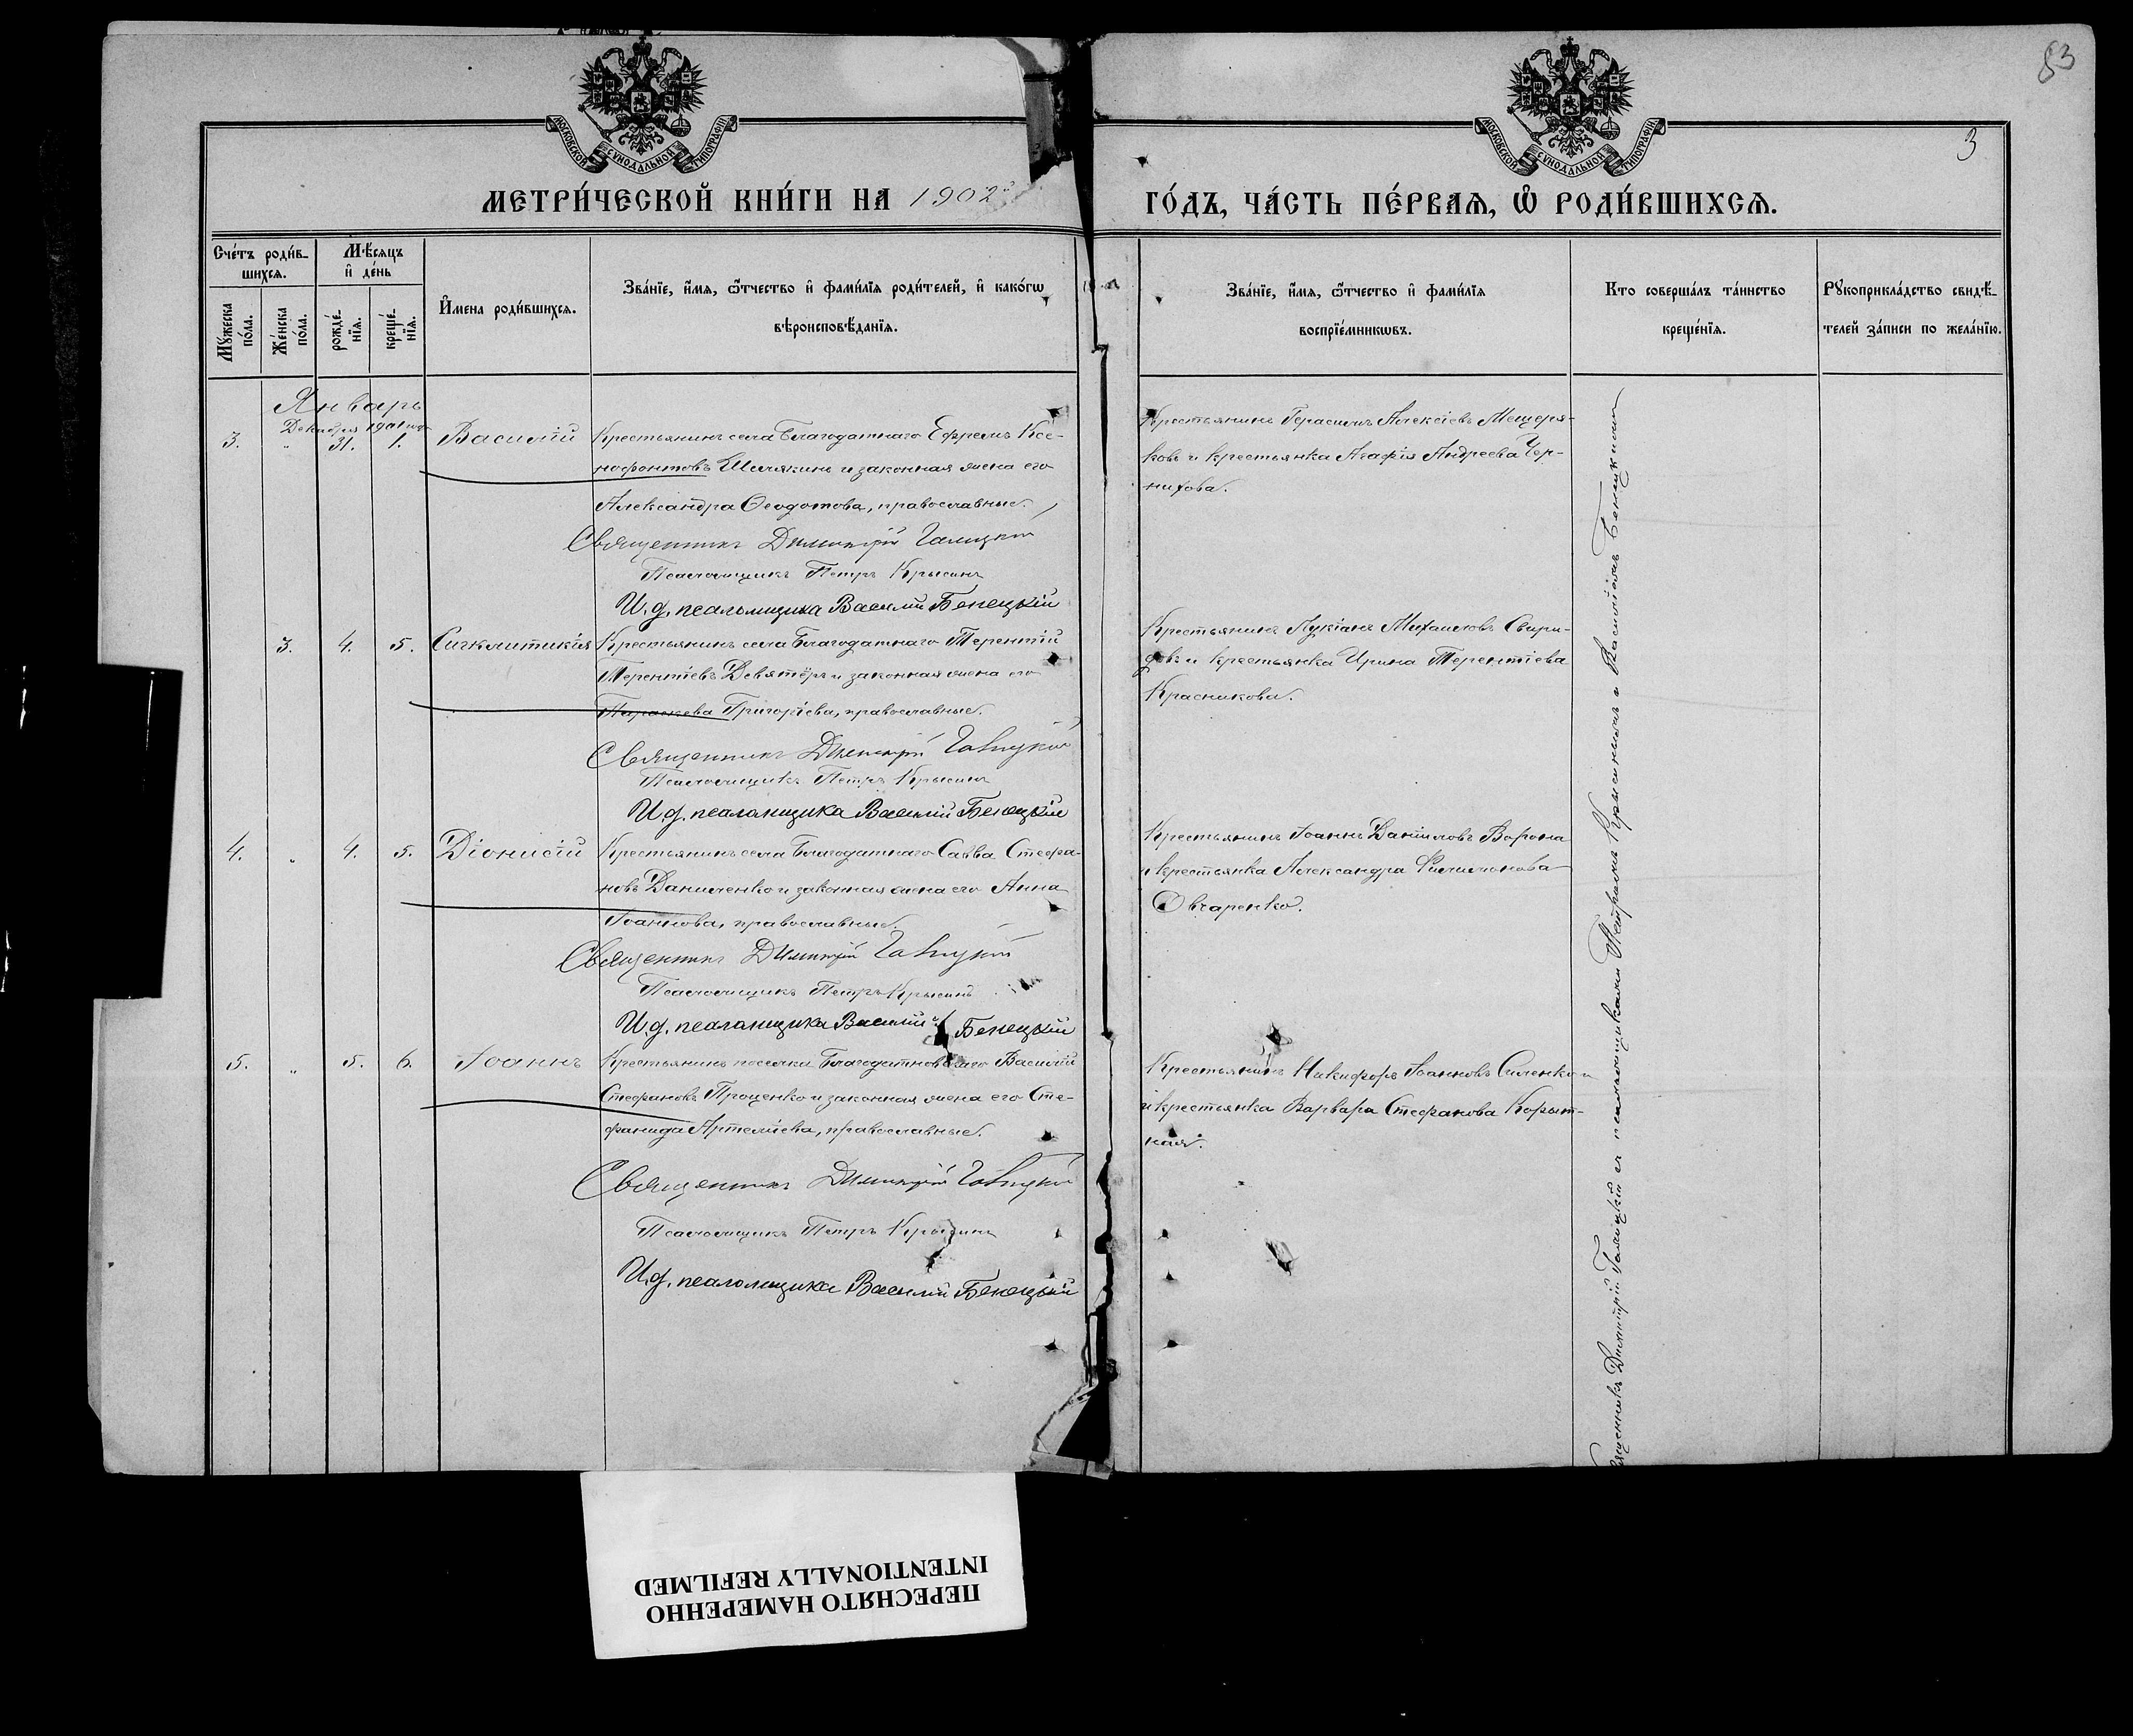 83
3
МОСКОВСКОЙ СѴНОДАЛЬНОЙ ТИПОГРАФІИ
МОСКОВСКОЙ СѴНОДАЛЬНОЙ ТИПОГРАФІИ
МЕТРИ́ЧЕСКОЙ КНИ́ГИ НА 1902й
ГО́ДЪ, ЧА́СТЬ ПЕ́РВАѦ, Ѡ҆ РОДИ́ВШИХСѦ.
Сче́тъ роди́в-
шихсѧ.
Мꙋ́жеска по́ла.
Же́нска по́ла.
Мѣ́сѧцъ
и҆ де́нь
рожде́-нїѧ.
креще́-нїѧ.
И҆мена роди́вшихсѧ.
Зва́нїе, и҆́мѧ, ѻ҆́тчество и҆ фами́лїѧ роди́телей, и҆ како́гѡ
вѣроисповѣ́данїѧ.
Зва́нїе, и҆́мѧ, ѻ҆́тчество и҆ фами́лїѧ
воспрїе́мникѡвъ.
Кто соверша́лъ та́инство
креще́нїѧ.
Рꙋкоприкла́дство свидѣ́-
телей за́писи по жела́нїю.
Январь
Декабря 1901 года
3. " 31. 1. Василій
Крестьянинъ села Благодатнаго Ефремъ Ксе-
нофонтовъ Шелякинъ и законная жена его
Александра Ѳеодотова, православные.
Священникъ Димитрій Галицкій
Псаломщикъ Петръ Крысинъ
И.д. псаломщика Василій Бенецкій
Крестьянинъ Герасимъ Алексіевъ Мещеря-
ковъ и крестьянка Агафія Андреева Чер-
нихова.
3. 4. 5. Сигклитикія
Крестьянинъ села Благодатнаго Терентій
Терентіевъ Девятёръ и законная жена его
Параскева Григоріева, православные.
Священникъ Димитрій Галицкій
Псаломщикъ Петръ Крысинъ
И.д. псаломщика Василій Бенецкій
Крестьянинъ Лукіанъ Михаиловъ Свири-
довъ и крестьянка Ирина Терентіева
Красникова.
4. " 4. 5. Діонисій
Крестьянинъ села Благодатнаго Савва Стефа-
новъ Даниленко и законная жена его Анна
Іоаннова, православные.
Священникъ Димитрій Галицкій
Псаломщикъ Петръ Крысинъ
И.д. псаломщика Василій Бенецкій
Крестьянинъ Іоаннъ Даніиловъ Ворона
и крестьянка Александра Филимонова
Овчаренко.
5. " 5. 6. Іоаннъ
Крестьянинъ поселка Благодатновскаго Василій
Стефановъ Проценко и законная жена его Сте-
фанида Артеміева, православные.
Священникъ Димитрій Галицкій
Псаломщикъ Петръ Крысинъ
И.д. псаломщика Василій Бенецкій
Крестьянинъ Никифоръ Іоанновъ Силенко
и крестьянка Варвара Стефанова Корыт-
ная.
Священникъ Димитрій Галицкій съ псаломщиками Петромъ Крысинымъ и Василіемъ Бенецкимъ
ПЕРЕСНЯТО НАМЕРЕННО
INTENTIONALLY REFILMED